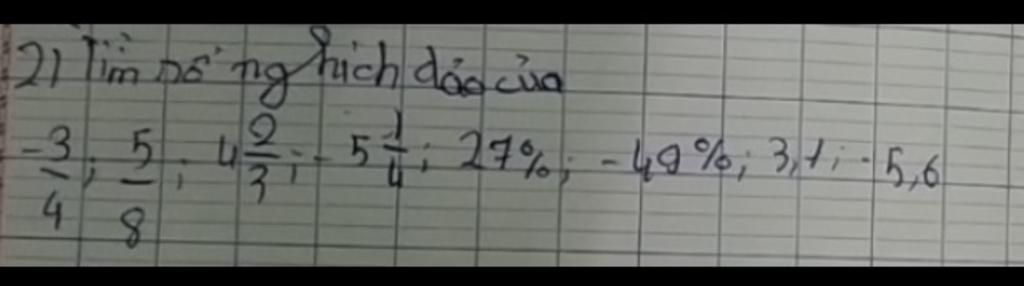 2) Tìm số nghịch đảo của
-3/4; 5/8; 4 2/3; -5 1/4; 27%; -49%; 3,1; -5,6